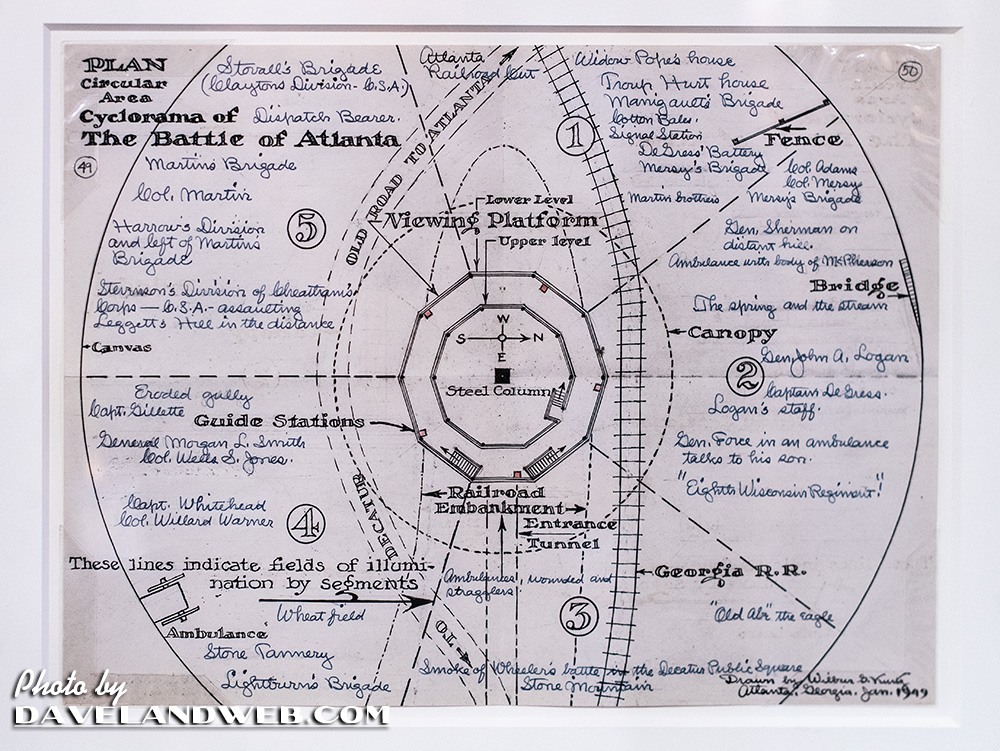 PLAN
Circular
Area
Cyclorama of
The Battle of Atlanta
49
Stovall's Brigade
(Clayton's Division - C.S.A.)
Dispatch Bearer.
Martin's Brigade
Col. Martin
5
Harrow's Division
and left of Martin's
Brigade
Stevenson's Division of Cheatham's
Corps — C.S.A. - assaulting
Leggett's Hill in the distance
Canvas
Atlanta
Railroad Cut
OLD ROAD TO ATLANTA
1
Widow Pope's house
Troup Hurt house
Manigault's Brigade
Cotton Bales.
Signal Station
DeGress' Battery
Mersy's Brigade
50
Fence
Col. Adams
Col. Mersy
Martin brothers
Mersy's Brigade
Gen. Sherman on
distant hill.
Ambulance with body of McPherson
Bridge
The spring and the stream
Canopy
Lower Level
Viewing Platform
Upper level
W
S N
E
Steel Column
2
Gen. John A. Logan
Captain DeGress.
Logan's staff.
Gen. Force in an ambulance
talks to his son.
"Eighth Wisconsin Regiment"
Eroded gully
Capt. Gillette
Guide Stations
General Morgan L. Smith
Col. Wells S. Jones.
Capt. Whitehead
Col. Willard Warner
4
These lines indicate fields of illumi-
nation by segments
Wheat field
Ambulance
Stone Tannery
Lightburn's Brigade
TO DECATUR
Railroad
Embankment
Entrance
Tunnel
Ambulances, wounded and
stragglers.
3
Georgia R.R.
"Old Abe" the eagle
Smoke of Wheeler's battle in the Decatur Public Square
Stone Mountain
Drawn by Wilbur G. Kurtz
Atlanta, Georgia. Jan. 1949
Photo by
DAVELANDWEB.COM